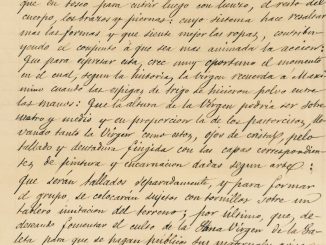 que en tosco para cubrir luego con lienzo, el resto del
cuerpo, los brazos y piernas: cuyo sistema hace resaltar
mas las formas y que siente mejor las ropas, contribu-
yendo el conjunto á que sea mas animada la accion:
Que para espresar esta, cree muy oportuno el momento
en el cual, segun la historia, la Virgen recuerda á Maxi-
mino cuando las espigas de trigo se hicieron polvo entre
las manos: Que la altura de la Virgen podria ser sobre
metro y medio y en proporcion la de los pastorcitos, lle-
vando tanto la Virgen como estos, ojos de cristal, pelo
tallado y encarnacion dadas segun arte:
que serán tallados separadamente, y para formar
el grupo, se colocarán sujetos con tornillos sobre un
tablero imitacion del terreno; y por último, que, de-
seando fomentar el culto de la Virgen de la Sa-
leta para que se hagan público sus